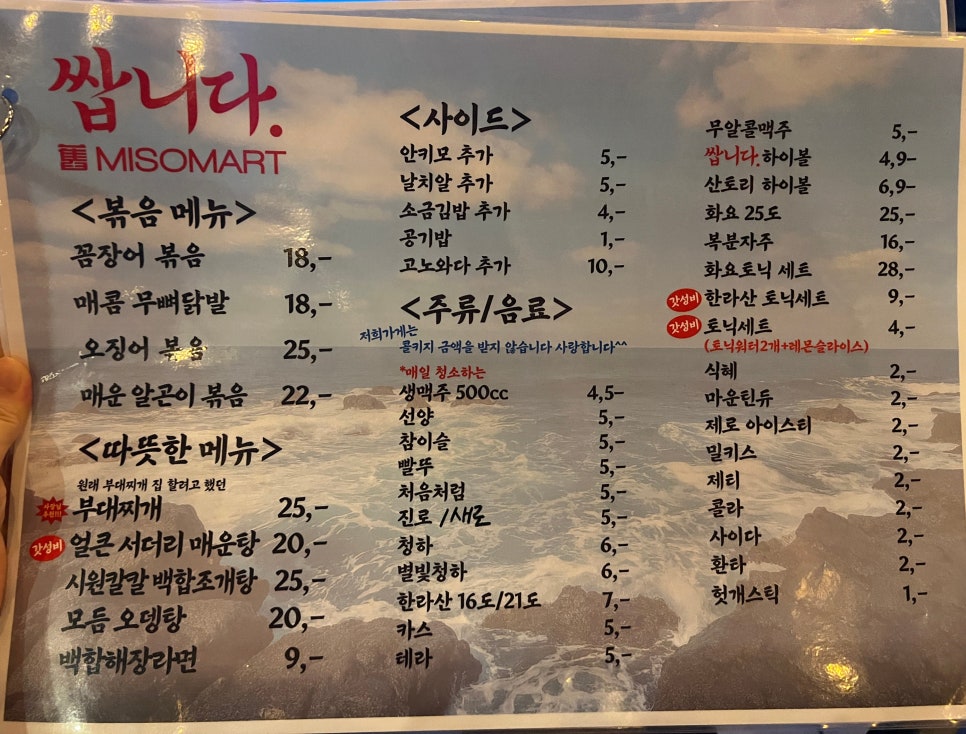 쌉니다.
舊 MISOMART
<볶음 메뉴>
꼼장어 볶음 18,-
매콤 무뼈닭발 18,-
오징어 볶음 25,-
매운 알곤이 볶음 22,-
<따뜻한 메뉴>
원래 부대찌개 집 할려고 했던
부대찌개 25,-
갓성비 얼큰 서더리 매운탕 20,-
시원칼칼 백합조개탕 25,-
모듬 오뎅탕 20,-
백합해장라면 9,-
<사이드>
안키모 추가 5,-
날치알 추가 5,-
소금김밥 추가 4,-
공기밥 1,-
고노와다 추가 10,-
<주류/음료>
저희가게는
콜키지 금액을 받지 않습니다 사랑합니다^^
*매일 청소하는
생맥주 500cc 4,5-
선양 5,-
참이슬 5,-
빨뚜 5,-
처음처럼 5,-
진로 /새로 5,-
청하 6,-
별빛청하 6,-
한라산 16도/21도 7,-
카스 5,-
테라 5,-
무알콜맥주 5,-
쌉니다.하이볼 4,9-
산토리 하이볼 6,9-
화요 25도 25,-
복분자주 16,-
화요토닉 세트 28,-
갓성비 한라산 토닉세트 9,-
갓성비 토닉세트 4,-
(토닉워터2개+레몬슬라이스)
식혜 2,-
마운틴듀 2,-
제로 아이스티 2,-
밀키스 2,-
제티 2,-
콜라 2,-
사이다 2,-
환타 2,-
헛개스틱 1,-